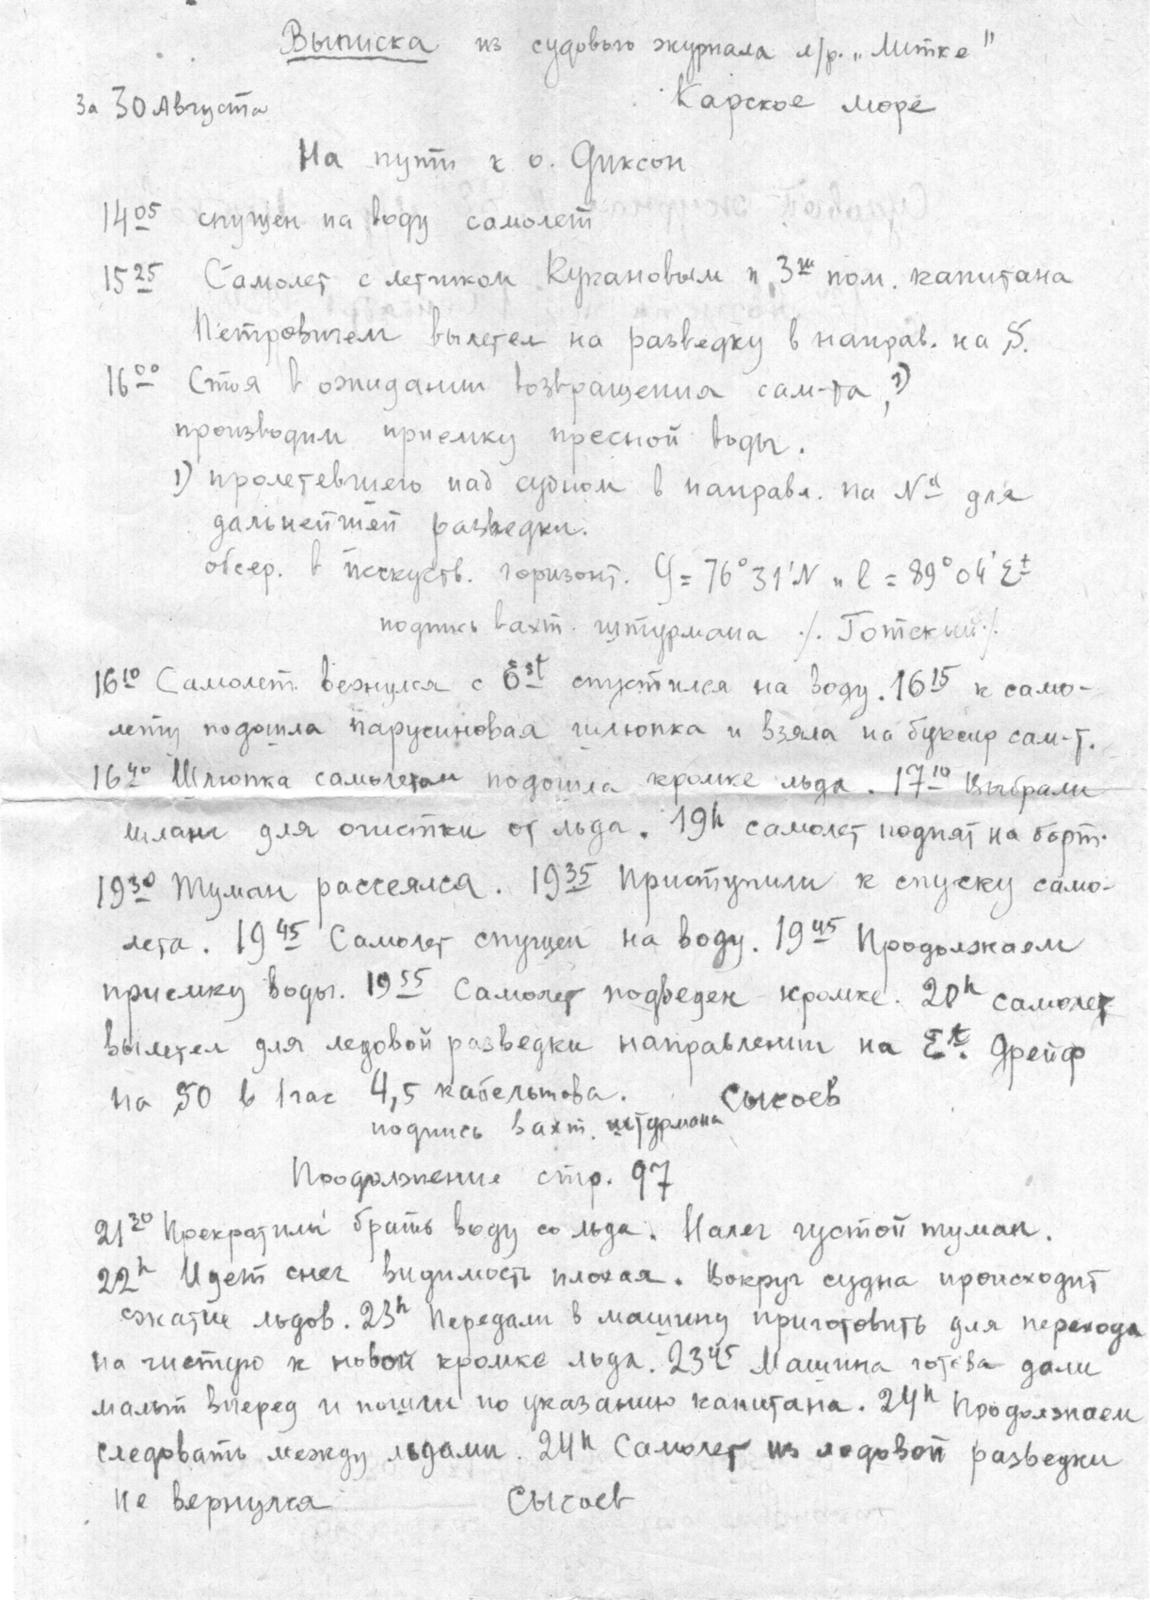 Выписка из судового журнала л/р. „Литке"
За 30 Августа Карское море
На пути к о. Диксон
14 05 спущен на воду самолет
15 25 Самолет с летчиком Кукановым и 3м пом. капитана
Петровичем вылетел на разведку в направ. на S.
16 00 Стоя в ожидании возвращения сам-та, 1)
производим приемку пресной воды.
1) пролетевшего над судном в направл. на Nд для
дальнейшей разведки.
обсер. в искуств. горизонт. φ = 76° 31' N и l = 89° 04' Est
подпись вахт. штурмана /. Готский ./.
16 10 Самолет вернулся с Est спустился на воду. 16 15 к само-
лету подошла парусиновая шлюпка и взяла на буксир сам-т.
16 40 Шлюпка самолетом подошла кромке льда. 17 10 Выбрали
шланг для очистки от льда. 19h самолет поднят на борт.
19 30 Туман рассеялся. 19 35 Приступили к спуску само-
лета. 19 45 Самолет спущен на воду. 19 45 Продолжаем
приемку воды. 19 55 Самолет подведен кромке. 20h самолет
вылетел для ледовой разведки направлении на Est. Дрейф
на SO в 1 час 4,5 кабельтова. Сысоев
подпись вахт. штурмана
Продолжение стр. 97
21 30 Прекратили брать воду со льда. Налег густой туман.
22h Идет снег видимость плохая. Вокруг судна происходит
сжатие льдов. 23h Передали в машину приготовить для перехода
на чистую к новой кромке льда. 23 45 Машина готова дали
малый вперед и пошли по указанию капитана. 24h Продолжаем
следовать между льдами. 24h Самолет из ледовой разведки
не вернулся Сысоев